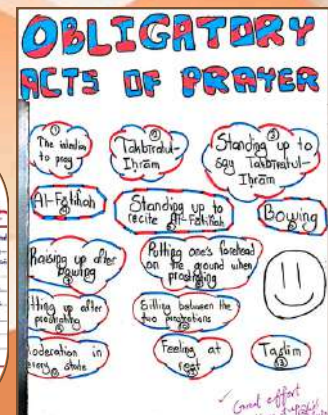 OBLIGATORY
ACTS OF PRAYER
①
The intention
to pray
②
Takbiratul-
Ihram
③
Standing up to
say Takbiratul-
Ihram
Al-Fatihah
④
Standing up to
recite Al-Fatihah
⑤
Bowing
⑥
Raising up after
bowing
Putting one's forehead
on the ground when
prostrating
itting up after
prostrating
Sitting between the
two prostrations
oderation in
every state
Feeling at
rest
Taslim
⑬
✓ Great effort